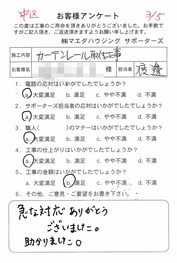 中区
3/5
お客様アンケート
この度は工事のご用命を頂きありがとうございました。お手数で
すがご記入頂き、ご返送頂きますようお願い申し上げます。
㈱マエダハウジング サポーターズ
施工内容 カーテンレール取付工事
お客様名 様 担当者 渡邊
1. 電話の対応はいかがでしたでしょうか?
a. 大変満足 b. 満足 c. やや不満 d. 不満
2. サポーターズ担当者の応対はいかがでしたでしょうか?
a. 大変満足 b. 満足 c. やや不満 d. 不満
3. 職人( )のマナーはいかがでしたでしょうか?
a. 大変満足 b. 満足 c. やや不満 d. 不満
4. 工事の仕上がりはいかがでしたでしょうか?
a. 大変満足 b. 満足 c. やや不満 d. 不満
5. 工事の金額はいかがでしたでしょうか?
a. 大変満足 b. 満足 c. やや不満 d. 不満
急な対応 ありがとう
ございました。
助かりました。